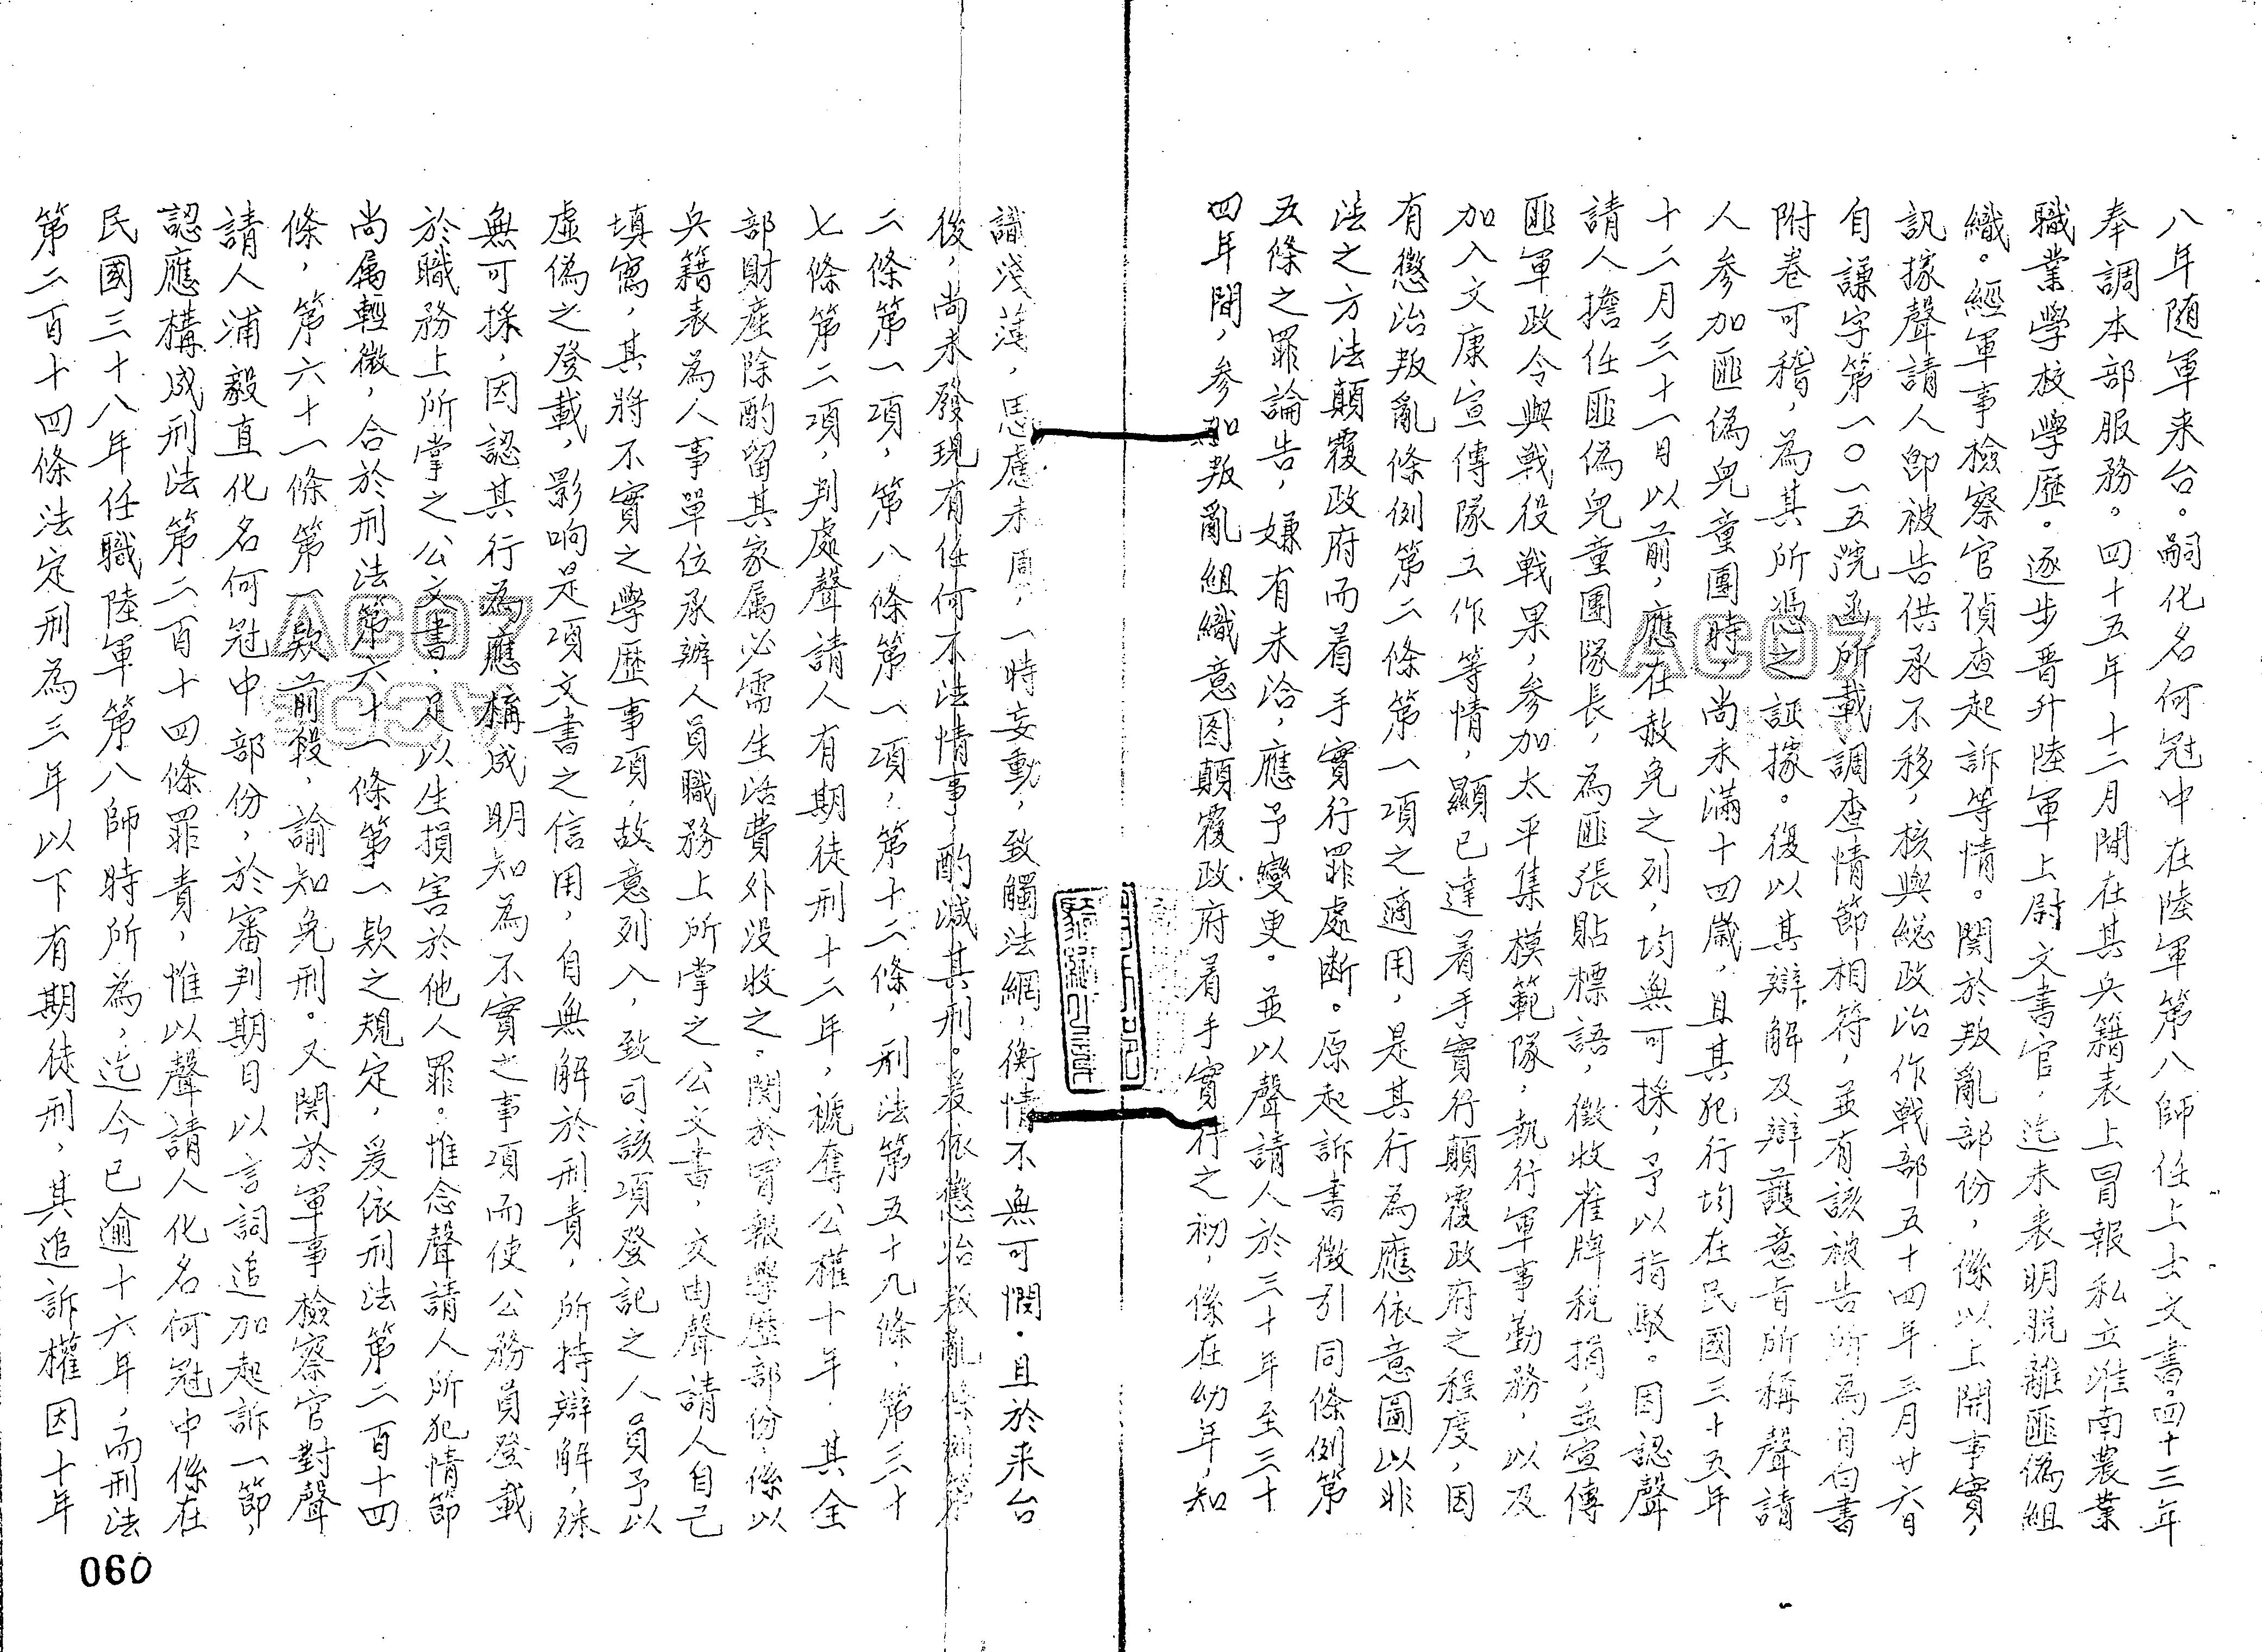 八年随軍来台。嗣化名何冠中在陸軍第八師任上士文書。四十三年
奉調本部服務。四十五年十二月間在其兵籍表上冒報私立淮南農業
職業學校學歷。逐步晋升陸軍上尉文書官，迄未表明脫離匪偽組
織。經軍事檢察官偵查起訴等情。関於叛亂部份，係以上開事實，
訊據聲請人即被告供承不移，核與総政治作戰部五十四年三月廿六日
自謙字第一〇一五號函所載調查情節相符，並有該被告所為自白書
附卷可稽，為其所憑之証據。復以其辯解及辯護意旨所稱聲請
人参加匪偽兒童團時，尚未滿十四歲，且其犯行均在民國三十五年
十二月三十一日以前，應在赦免之列，均無可採，予以指駁。因認聲
請人擔任匪偽兒童團隊長，為匪張貼標語，徵收 牌税捐，並宣傳
匪軍政令與戰役戰果，参加太平集模範隊，執行軍事勤務，以及
加入文康宣傳隊工作等情，顯已達着手實行顛覆政府之程度，因
有懲治叛亂條例第二條第一項之適用，是其行為應依意圖以非
法之方法顛覆政府而着手實行罪處断。原起訴書徵引同條例第
五條之罪論告，嫌有未洽，應予變更。並以聲請人於三十年至三十
四年間，参加叛亂組織意图顛覆政府着手實行之初，係在幼年，知
識淺薄，思慮未周，一時妄動，致觸法網，衡情不無可憫。且於来台
後，尚未發現有任何不法情事，酌減其刑。爰依懲治叛亂條例第
二條第一項，第八條第一項，第十二條，刑法第五十九條，第三十
七條第二項，判處聲請人有期徒刑十二年，褫奪公權十年。其全
部財產除酌留其家屬必需生活費外没收之。関於冒報學歷部份，係以
兵籍表為人事單位承辦人員職務上所掌之公文書，交由聲請人自己
填寫，其將不實之學歷事項，故意列入，致司該項登記之人員予以
虛偽之登載，影响是項文書之信用，自無解於刑責，所持辯解，殊
無可採，因認其行為應構成明知為不實之事項而使公務員登載
於職務上所掌之公文書，足以生損害於他人罪。惟念聲請人所犯情節
尚屬輕微，合於刑法第六十一條第一款之規定，爰依刑法第二百十四
條，第六十一條第一款前段，諭知免刑。又関於軍事檢察官對聲
請人浦毅直化名何冠中部份，於審判期日以言詞追加起訴一節，
認應構成刑法第二百十四條罪責，惟以聲請人化名何冠中係在
民國三十八年任職陸軍第八師時所為，迄今已逾十六年，而刑法
第二百十四條法定刑為三年以下有期徒刑，其追訴權因十年
060